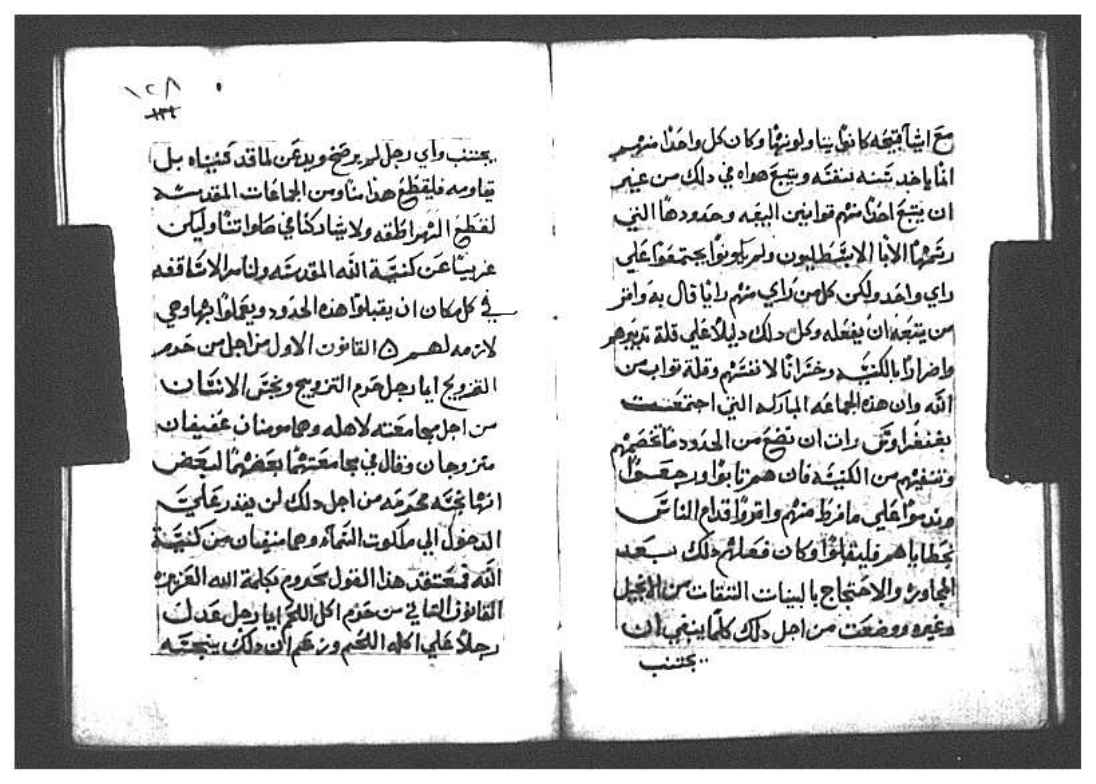 مع اشيا قبيحه كانوا يتناولونها وكان كل واحدا منهم
انما ياخد لنفسه ويتبع هواه في دلك من غير
ان يتبع احدا منهم قوانين البيعه وحدودها التي
رسمها الابا الابسطليون ولم يكونوا يجتمعوا علي
راي واحد ولكن كل من راي منهم رايا قال به وامر
من يتبعه ان يفعله وكل دلك دليلا علي قلة تدبيرهم
واضرارا بالكنيسه وخسرانا لانفسهم وقلة تواب من
الله وان هذه الجماعه المباركه التي اجتمعت
بغنغرا رات ان تضع من الحدود ما تخصمهم
وتنفيهم من الكنيسه فان هم تابوا ورجعوا
وندموا علي ما فرط منهم واقروا قدام الناس
بخطاياهم فليقبلوا وكان فعلهم دلك بعد
المجاوره والاحتجاج بالبينات التقات من الانجيل
وغيره ووضعت من اجل دلك كلما ينبغي ان
يجتنب
١٢٨
١٣٤
يجتنب واي رجل لم يرضخ ويدعن لما قد كتبناه بل
يقاومه فليقطع هذا منا ومن الجماعات المقدسه
كقطع الهراطقه ولا يشاركنا في صلواتنا وليكن
غريبا عن كنيسة الله المقدسه ولنامر الاساقفه
في كل مكان ان يقبلوا هذه الحدود ويعملوا بها وهي
لازمه لهم ۞ القانون الاول من اجل من حرم
التزويج ايما رجل حرم التزويج ونجس الانسان
من اجل مجامعته لاهله وهما مومنان عفيفان
متزوجان وقال في مجامعتهما بعضهما لبعض
انها نجسه محرمه من اجل دلك لن يقدر علي
الدخول الي ملكوت السماء وهما منفيان من كنيسة
الله فمعتقد هذا القول محروم بكلمة الله العزيزه
القانون التاني من حرم اكل اللحم ايما رجل عدل
رجلا علي اكله اللحم وزعم ان دلك ينجسه